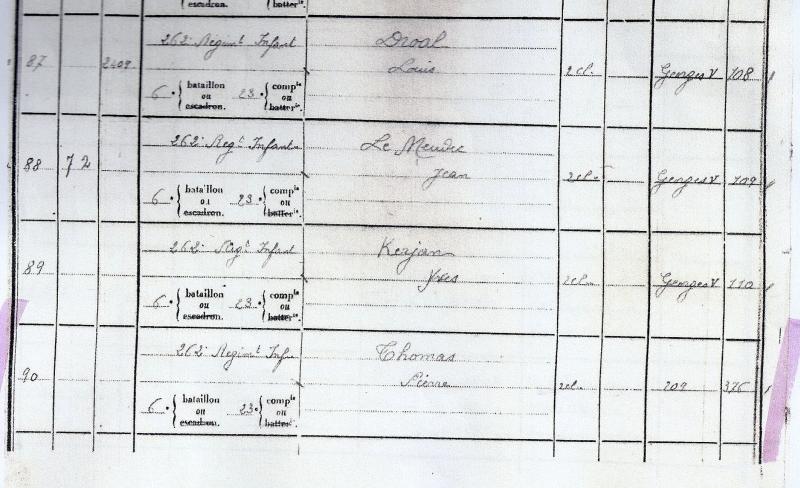 escadron. batter ie.
262e Regimt Infant Droal
87 2409 Louis 2cl. Georges V 108
6e bataillon ou escadron. 23e compie ou batterie.
262e Regt Infant Le Meudec
88 72 Jean 2cl. Georges V 109
6e bataillon ou escadron. 23e compie ou batterie.
262e Regt Infant Kerjan
89 Yves 2cl. Georges V 110
6e bataillon ou escadron. 23e compie ou batterie.
262e Regimt Infr Thomas
90 Pierre 2cl. 209 376
6e bataillon ou escadron. 23e compie ou batterie.